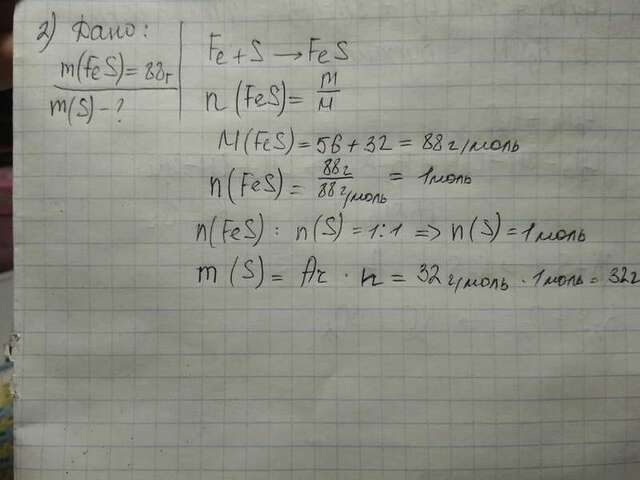 2) Дано:
m(FeS) = 88г
m(S) - ?
Fe + S → FeS
n(FeS) = m/M
M(FeS) = 56 + 32 = 88 г/моль
n(FeS) = 88г/88г/моль = 1моль
n(FeS) : n(S) = 1:1 => n(S) = 1моль
m(S) = Ar · n = 32 г/моль · 1моль = 32г